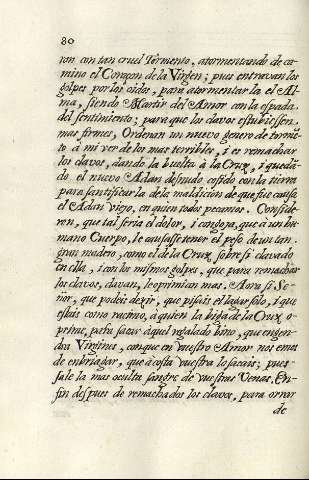 80
ron con tan cruel Tormento, atormentando de ca-
mino el Coraçon de la Virgen; pues entravan los
golpes por los oidos, para atormentar la el Al-
ma, siendo Martir del Amor con la espada
del sentimiento; para que los clavos estubiessen
mas firmes, Ordenan un nuevo genero de tormẽ
to â mi ver de los mas terribles, i es remachar
los clavos, dando la buelta à la Cruz, i quedã
do el nuevo Adan desnudo cosido con la tierra
para santificar la de la maldicion de que fue causa
el Adan viejo, en quien todos pecamos. Conside-
ren, que tal seria el dolor, i congoja, que à un hu-
mano Cuerpo, le causasse tener el peso de un tan
gran madero, como el de la Cruz sobre si clavado
en ella, i con los mismos golpes, que para remachar
los clavos, davan, le oprimian mas. Aora si Se-
ñor, que podeis dezir, que pisais el lagar solo, i que
estais como racimo, à quien la biga de la Cruz o-
prime, para sacar aquel regalado bino, que engen-
dra Virgines, con que en vuestro Amor nos emos
de enbriagar, que à costa vuestra lo sacais; pues
sale la mas oculta sangre de vuestras Venas. En-
fin despues de remachados los clavos, para orar
de